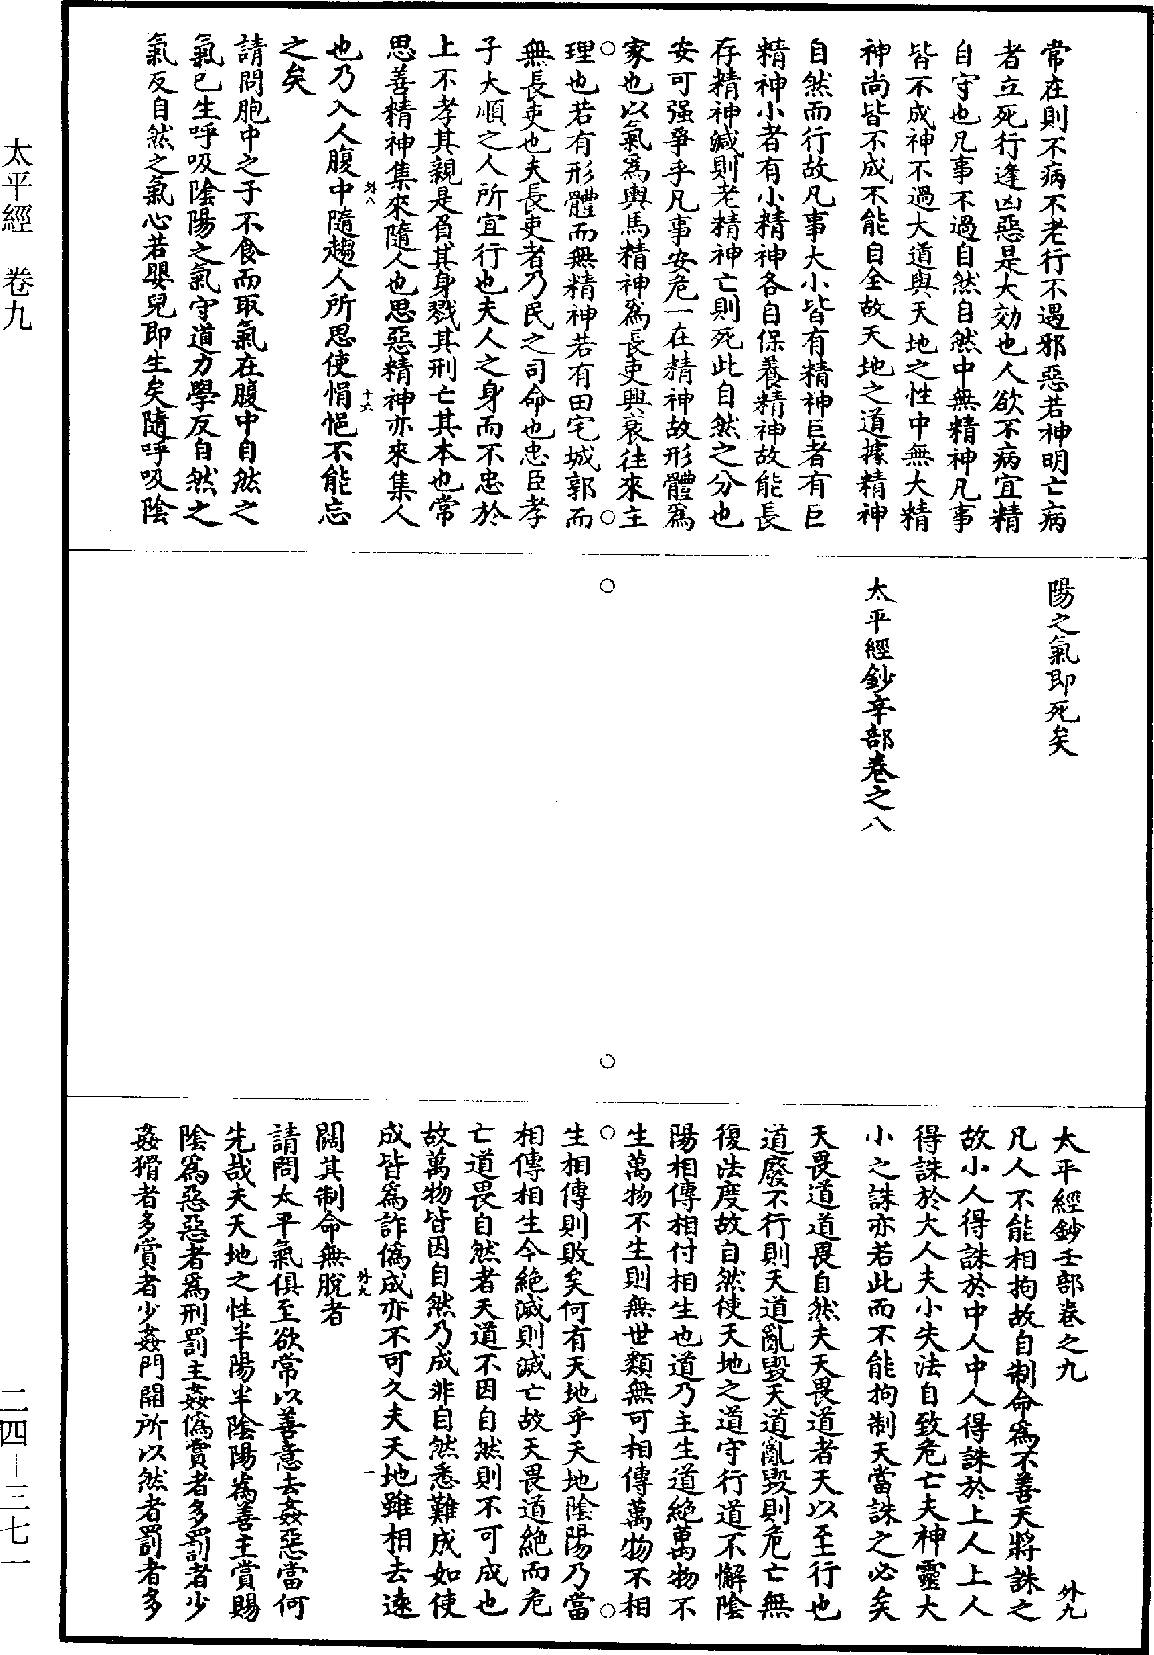 太平經　卷九
常在則不病不老行不遇邪惡若神明亡病
者立死行逢凶惡是大効也人欲不病宜精
自守也凡事不過自然自然中無精神凡事
皆不成神不過大道與天地之性中無大精
神尚皆不成不能自全故天地之道據精神
自然而行故凡事大小皆有精神巨者有巨
精神小者有小精神各自保養精神故能長
存精神減則老精神亡則死此自然之分也
安可强爭乎凡事安危一在精神故形體為
家也以氣為輿馬精神為長吏興衰往來主
理也若有形體而無精神若有田宅城郭而
無長吏也夫長吏者乃民之司命也忠臣孝
子大順之人所宜行也夫人之身而不忠於
上不孝其親是負其身戮其刑亡其本也常
思善精神集來隨人也思惡精神亦來集人
外八　十六
也乃入人腹中隨趨人所思使悁悒不能忘
之矣
請問胞中之子不食而取氣在腹中自然之
氣已生呼吸陰陽之氣守道力學反自然之
氣反自然之氣心若嬰兒即生矣隨呼吸陰
陽之氣即死矣
太平經鈔辛部卷之八
太平經鈔壬部卷之九　外九
凡人不能相拘故自制命為不善天將誅之
故小人得誅於中人中人得誅於上人上人
得誅於大人夫小失法自致危亡夫神靈大
小之誅亦若此而不能拘制天當誅之必矣
天畏道道畏自然夫天畏道者天以至行也
道廢不行則天道亂毀天道亂毀則危亡無
復法度故自然使天地之道守行道不懈陰
陽相傳相付相生也道乃主生道絶萬物不
生萬物不生則無世類無可相傳萬物不相
生相傳則敗矣何有天地乎天地陰陽乃當
相傳相生今絶滅則滅亡故天畏道絶而危
亡道畏自然者天道不因自然則不可成也
故萬物皆因自然乃成非自然悉難成如使
成皆為詐偽成亦不可久夫天地雖相去遠
外九　一
闊其制命無脫者
請問太平氣俱至欲常以善意去姦惡當何
先哉夫天地之性半陽半陰陽為善主賞賜
陰為惡惡者為刑罰主姦偽賞者多罰者少
姦猾者多賞者少姦門開所以然者罰者多
二四—三七一